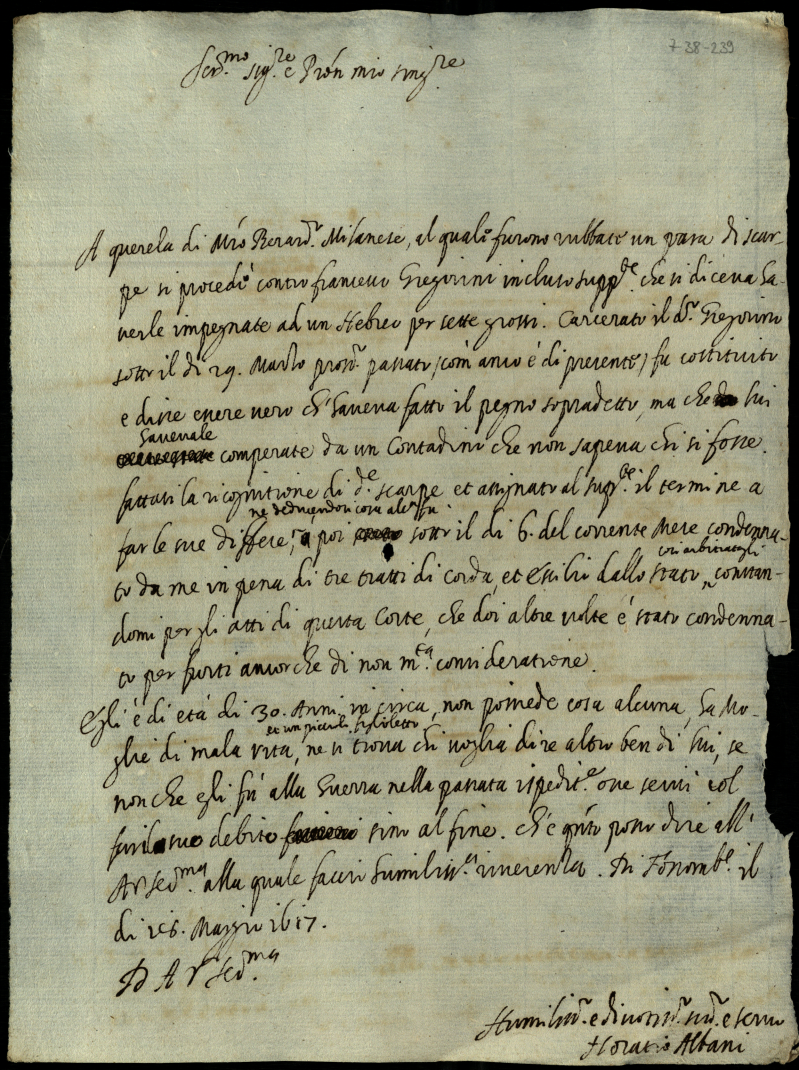 7-38-239
Ser.mo sig.re e Pròn mio sing.re
A querela di Mro Berard.o Milanese, al quale furono rubbate un para di scar-
pe si procedè contro francesco Gregorini incluso supp.te che si diceva ha-
verle impegnate ad un Hebreo per sette grossi. Carcerato il d.o Gregorino
sotto il di 29. Marzo pross.o passato, (com' anco è di presente) fu costituito
e disse essere vero ch' haveva fatto il pegno sopradetto, ma che lui
havevale
comperate da un Contadino che non sapeva chi si fosse.
fattasi la ricognitione di d.e scarpe et assignato al supp.te il termine a
ne deducendosi cosa alc.a fu
far le sue diffese, poi sotto il di 6. del corrente Mese condenna-
con arbitrargli
to da me in pena di tre tratti di corda, et esilio dallo stato, constan-
domi per gli atti di questa Corte, che doi altre volte è stato condenna-
to per furti ancorche di non m.ta consideratione.
Egli è di età di 30. Anni in circa, non possiede cosa alcuna, ha Mo-
et un piccolo figlioletto
glie di mala vita, ne si trova chi voglia dire altro ben di lui, se
non che egli fù alla Guerra nella passata ispedit.e ove servì col
suo debito sino al fine. ch'è q.nto posso dire all'
A.V. Ser.ma alla quale faccio humiliss.a riverenza. Di Fossomb.e il
di 16. Maggio 1617.
D A V Ser.ma
Humiliss.o e divotiss.o sud.o e servo
Horatio Albani